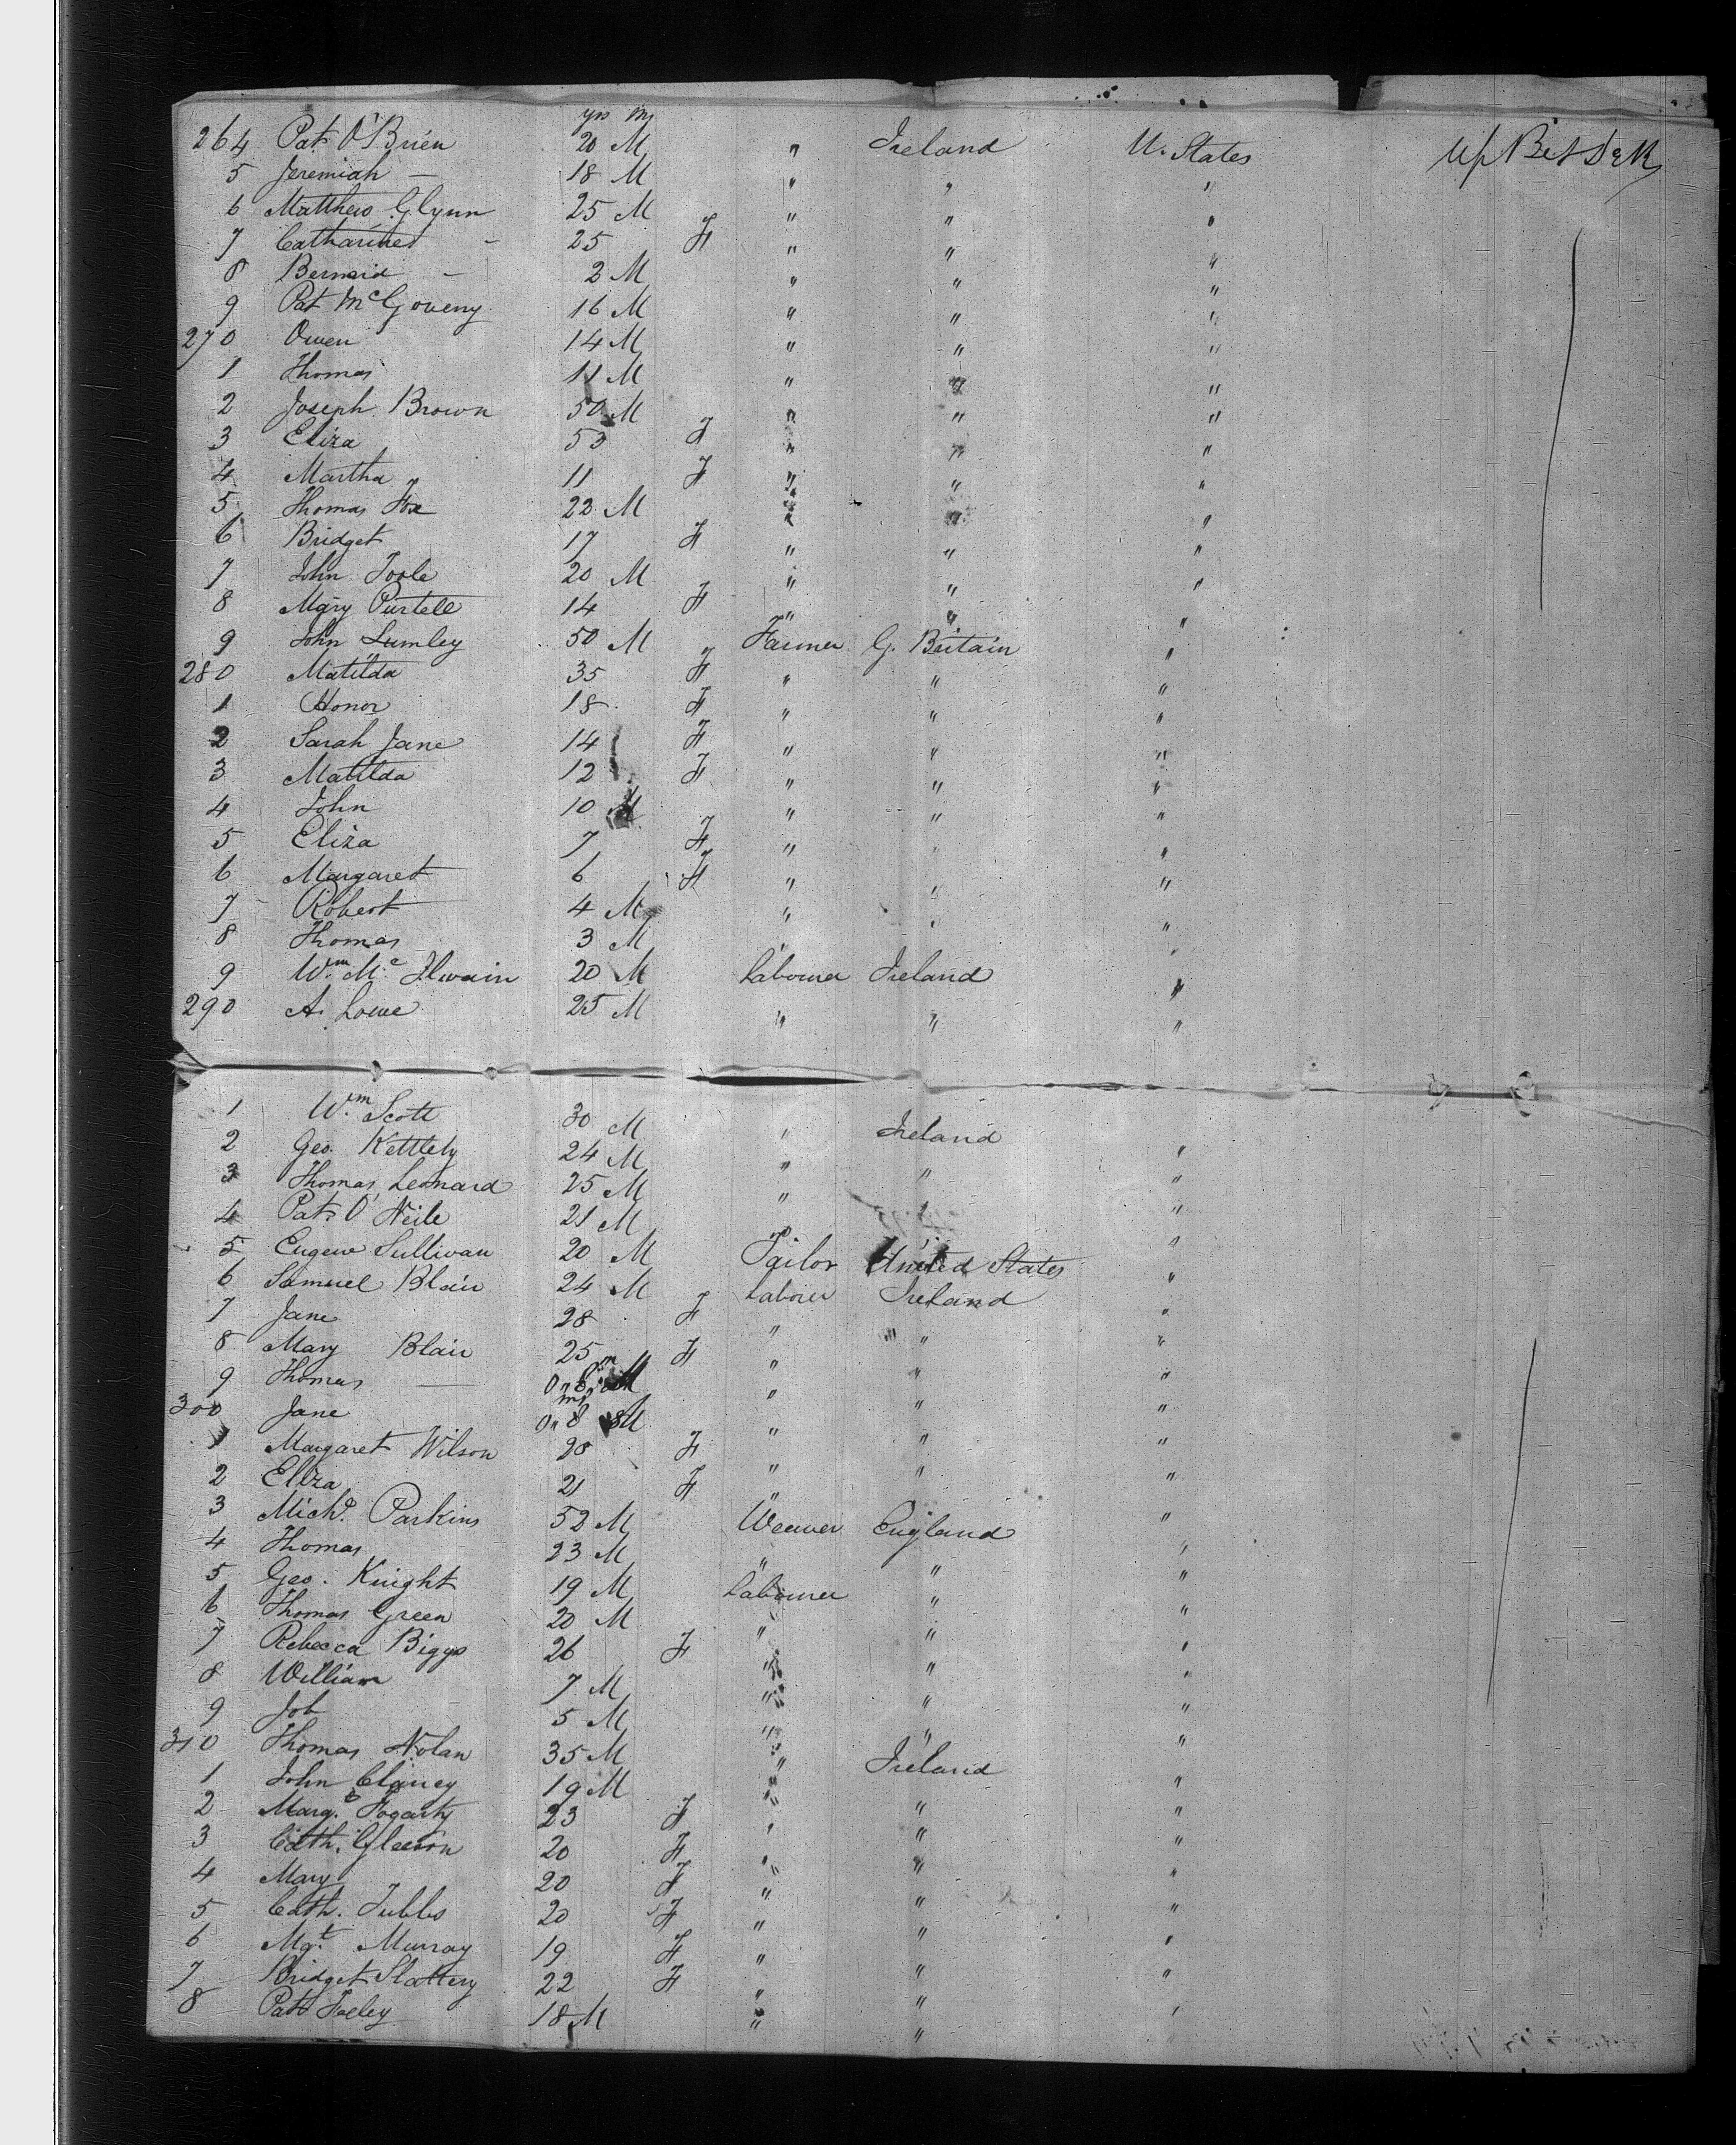 yrs Ms
264 Pat O'Brien 20 M " Ireland U. States Up Bet Deck
5 Jeremiah — 18 M " " "
6 Matthew Glynn 25 M " " "
7 Catharine - 25 F " " "
8 Bernard - 2 M " " "
9 Pat McGoveny 16 M " " "
270 Owen 14 M " " "
1 Thomas 11 M " " "
2 Joseph Brown 50 M " " "
3 Eliza 53 F " " "
4 Martha 11 F " " "
5 Thomas Fox 22 M " " "
6 Bridget 17 F " " "
7 John Toole 20 M " " "
8 Mary Purtell 14 F " " "
9 John Lumley 50 M Farmer G. Britain "
280 Matilda 35 F " " "
1 Honor 18 F " " "
2 Sarah Jane 14 F " " "
3 Matilda 12 F " " "
4 John 10 M " " "
5 Eliza 7 F " " "
6 Margaret 6 F " " "
7 Robert 4 M " " "
8 Thomas 3 M " " "
9 Wm. Mc Ilwain 20 M Labourer Ireland "
290 A. Lowe 25 M " " "
1 Wm. Scott 30 M " Ireland "
2 Geo. Kettlety 24 M " " "
3 Thomas Leonard 25 M " " "
4 Pat. O'Neile 21 M " "
5 Eugene Sullivan 20 M Tailor United States "
6 Samuel Blair 24 M Labourer Ireland "
7 Jane 28 F " " "
8 Mary Blair 25 F " " "
9 Thomas — 0 " 8 M " " "
300 Jane 0 " 8 " " "
1 Margaret Wilson 28 F " " "
2 Eliza 21 F " " "
3 Michd. Parkins 52 M Weaver England "
4 Thomas 23 M " " "
5 Geo. Knight 19 M Labourer " "
6 Thomas Green 20 M " " "
7 Rebecca Biggs 26 F " " "
8 William 7 M " " "
9 Job 5 M " " "
310 Thomas Nolan 35 M " Ireland "
1 John Clancy 19 M " " "
2 Margt. Fogarty 23 F " " "
3 Cath. Gleeson 20 F " " "
4 Mary 20 F " " "
5 Cath. Tubbs 20 F " " "
6 Mgt. Murray 19 F " " "
7 Bridget Slattery 22 F " " "
8 Patt Foley 18 M " "